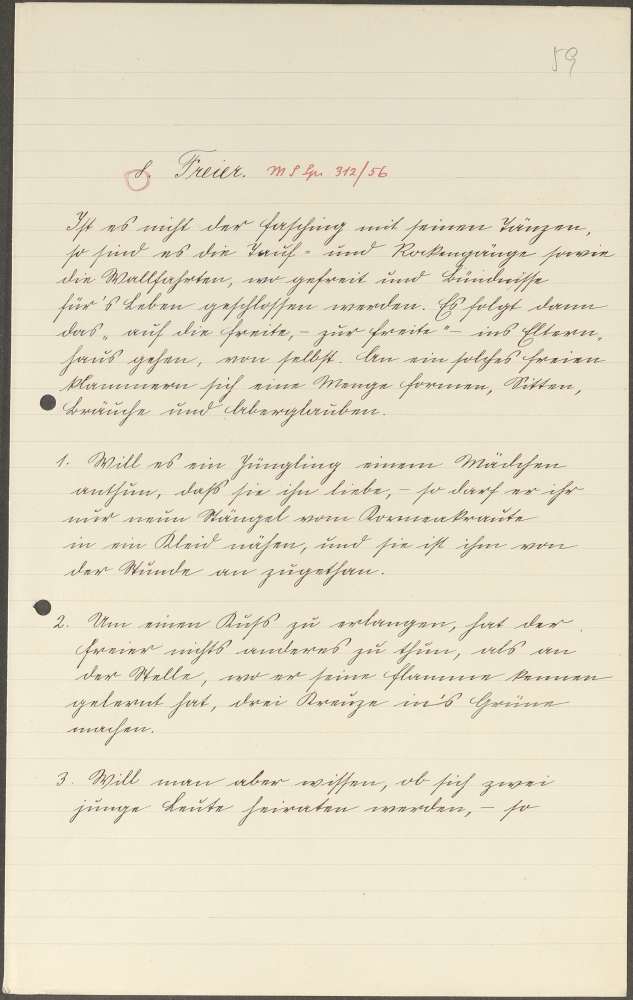 59
8. Freier. MS Sp. 312/56
Ist es nicht der Fasching mit seinen Tänzen,
so sind es die Tauf- und Rockengänge sowie
die Wallfahrten, wo gefreit und Bündnisse
für's Leben geschlossen werden. Es folgt dann
das „auf die Freite, – zur Freite" – ins Eltern„
haus gehen, von selbst. An ein solches Freien
klammern sich eine Menge Formen, Sitten,
Bräuche und Aberglauben.
1. Will es ein Jüngling einem Mädchen
anthun, daß sie ihn liebe, – so darf er ihr
nur neun Stängel vom
in ein Kleid nähen, und sie ist ihm von
der Stunde an zugethan.
2. Um einen Kuß zu erlangen, hat der
Freier nichts anderes zu thun, als an
der Stelle, wo er seine Flamme kennen
gelernt hat, drei Kreuze in's Grüne
machen.
3. Will man aber wissen, ob sich zwei
junge Leute heiraten werden, – so